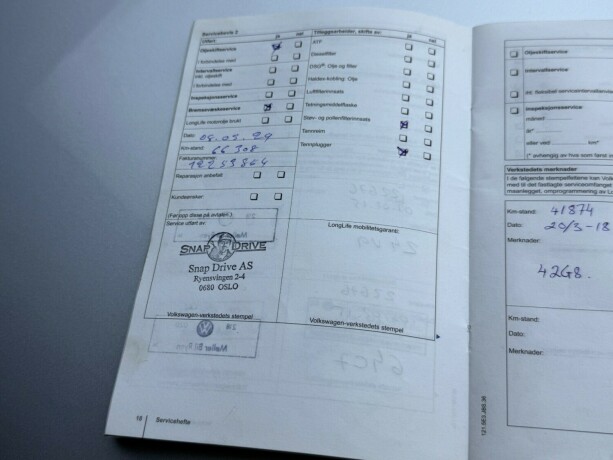 Servicebevis 2
ja nei
Oljeskiftservice
I forbindelse med
Intervallservice
inkl. oljeskift
I forbindelse med
Inspeksjonsservice
Bremsevæskeservice
LongLife motorolje brukt
Dato:
Km-stand: 66 308
Fakturanummer:
Reparasjon anbefalt
Kundeønsker:
(Før opp disse på avtalen.)
Service utført av:
SNAP DRIVE
Snap Drive AS
Ryensvingen 2-4
0680 OSLO
Volkswagen-verkstedets stempel
Tilleggsarbeider, skifte av:
ja nei
ATF
Dieselfilter
DSG®: Olje og filter
Haldex-kobling: Olje
Luftfilterinnsats
Tetningsmiddelflaske
Støv- og pollenfilterinnsats
Tannreim
Tennplugger
LongLife mobilitetsgaranti:
Volkswagen-verkstedets stempel
16 Servicehefte
Oljeskiftservice
Intervallservice
Inspeksjonsservice
eller ved
Verkstedets merknader
Km-stand: 41874
Dato: 20/3-18
Merknader:
42G8.
Km-stand:
Dato:
Merknader: